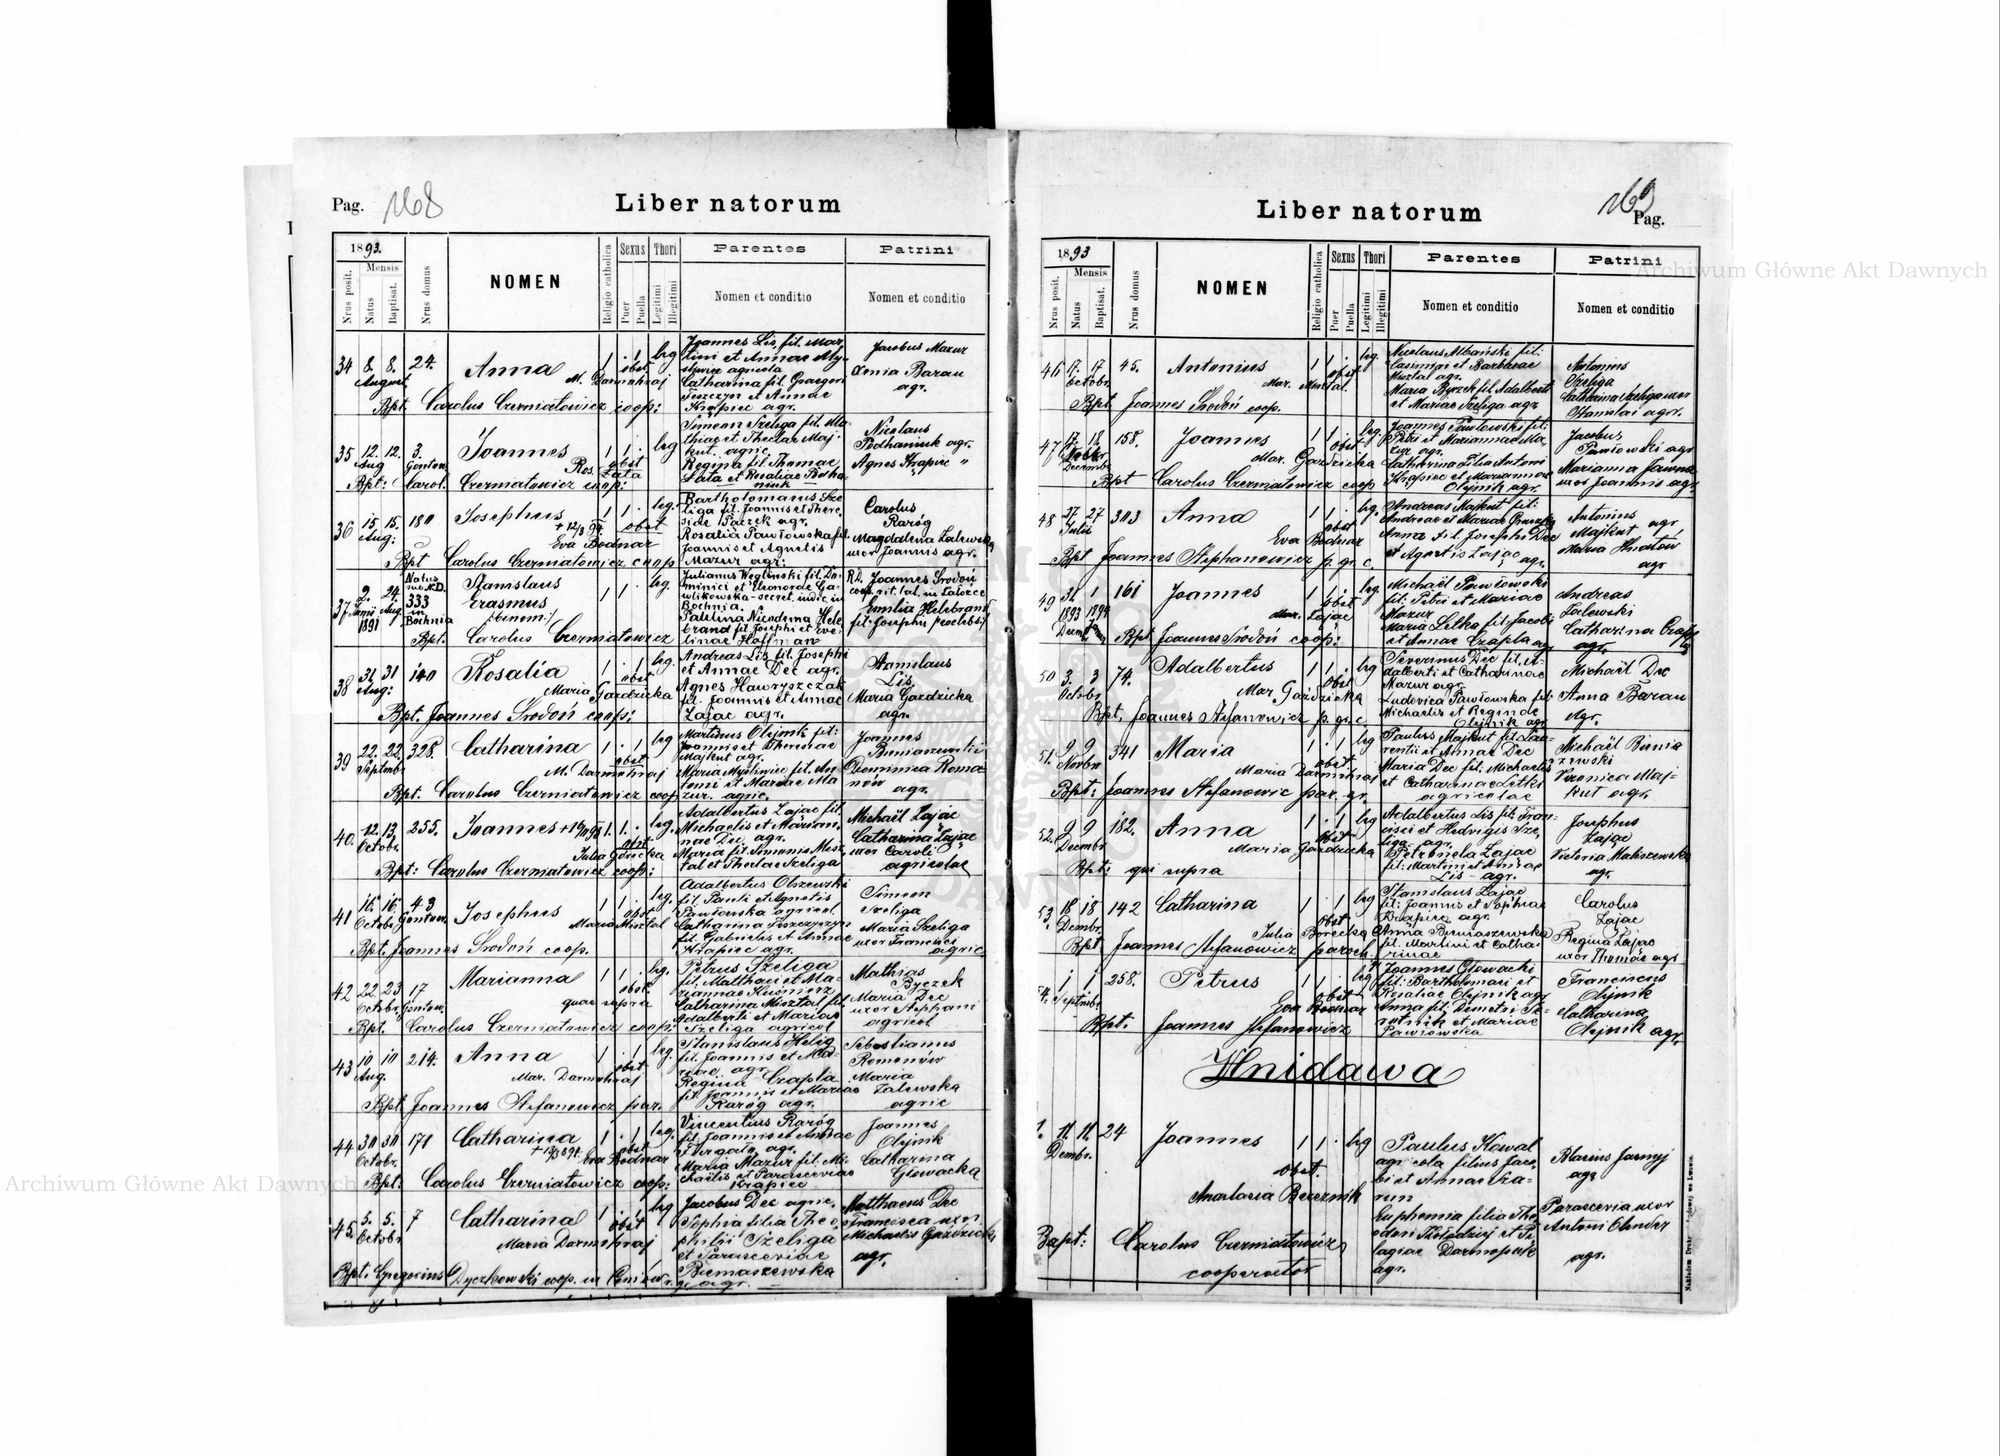 Pag. 168
Liber natorum
1893.
Nrus posit.
Mensis
Natus
Baptisat.
Nrus domus
NOMEN
Religio catholica
Sexus
Puer
Puella
Thori
Legitimi
Illegitimi
Parentes
Nomen et conditio
Patrini
Nomen et conditio
34 8. 8. 24. Anna 1 . 1 leg
August
Joannes Lis, fil. Mar-
tini et Annae
Catharina fil. Gregorii
et Annae
Krapiec agr.
Jacobus Mazur
Xenia Baran
agr.
obst. M. Darmohraj
Bpt. Carolus Czerniatowicz coop:
35 12. 12. 3. Joannes 1 1 . leg
Aug Gontow.
Simeon Szeliga fil. Ma-
thiae et Theclae Maj-
kut. agric.
Regina fil. Thomae
Łata et Rosaliae Podha-
niuk
Nicolaus
Podhaniuk agr.
Agnes Krapiec "
Ros. obst Łata
Bpt: Carol. Czerniatowicz coop:
36 15. 15. 180 Josephus 1 1 . leg.
Aug:
Bartholomaeus Sze-
liga fil. Joannis et There-
siae Pączek agr.
Rosalia Pawłowska fil.
Joannis et Agnetis
Mazur agr:
Carolus
Raróg
Magdalena Zalewska
uxor Joannis agr.
obst
Eva Bodnar
Bpt Carolus Czerniatowicz coop
37 2. 24. Junii Aug. 1891
Natus
333
in
Bochnia
Stanislaus
Erasmus
/binom:/
1 1 . leg.
Julianus Węgliński fil. Do-
minici et Eleonorae Ga-
wlikowska - secret. iudic. in
Bochnia.
Paulina Nicodema Hele-
brand fil. Josephi et Eve-
linae Hoffman
R.D. Joannes Środoń
coop. rit. lat. in Załoźce
Emilia Helebrand
fil. Josephi
Bpt. Carolus Czerniatowicz
38 31 31 140 Rosalia 1 . 1 leg.
Aug:
Andreas Lis fil. Josephi
et Annae Dec agr.
Agnes Hawryszczak
fil. Joannis et Annae
Zając agr.
Stanislaus
Lis
Maria Gazdzicka
agr.
obst
Maria Gazdzicka
Bpt. Joannes Środoń coop:
39 22. 22. 328. Catharina 1 . 1 leg
Septembr
Martinus Olejnik fil:
Joannis et Theresiae
Majkut agr.
Maria Myśliwiec fil. An-
tonii et Mariae Ma-
zur. agric.
Joannes
Biniaszewski
Dominica Roma-
nów agr.
obst
M. Darmohraj
Bpt. Carolus Czerniatowicz coop
40. 12. 13. 255. Joannes 1. 1. . leg.
Octobr.
Adalbertus Zając fil.
Michaelis et Marian-
nae Dec agr.
Maria fil. Simeonis Misz-
tal et Theclae Szeliga
Michaël Zając
Catharina Zając
uxor Caroli
agricolae
obst
Julia Gorecka
Bpt: Carolus Czerniatowicz coop:
41 16 16 43 Josephus 1 1 . leg.
Octobr Gontow.
Adalbertus Olszewski
fil. Pauli et Agnetis
Pawłowska agricol
Catharina Jeszczyszyn
fil. Gabrielis et Annae
Krapiec agr.
Simon
Szeliga
Maria Szeliga
uxor Francisci
agric.
obst
Maria Misztal
Bpt. Joannes Środoń coop.
42 22. 23 17 Marianna 1 . 1 leg.
Octobr Gontow.
Petrus Szeliga
fil. Matthaei et Ma-
riannae Kusnierz
Catharina Misztal fil
Adalberti et Mariae
Szeliga agricol
Mathias
Byczek
Maria Dec
uxor Stephani
agricol
obst
quae supra
Bpt. Carolus Czerniatowicz coop:
43 10 10 214. Anna 1 . 1 leg.
Aug.
Stanislaus Helig
fil. Joannis et Ma-
riae agr.
Regina Czapla
fil. Joannis et Mariae
Raróg agr.
Sebastianus
Romanów
Maria
Zalewska
agric
obst
Mar. Darmohraj
Bpt Joannes Stefanowicz par.
44 30 30 171 Catharina 1 . 1 leg.
Octobr.
Vincentius Raróg
fil. Joannis et Annae
agr.
Maria Mazur fil. Mi-
chaelis et Parasceviae
Krapiec
Joannes
Olejnik
Catharina
Głowacka
obst
Eva Bodnar
Bpt. Carolus Czerniatowicz coop:
45. 5. 5. 7 Catharina 1 . 1 leg
Octobr
Jacobus Dec agric.
Sophia filia Theo-
phili Szeliga
et Parasceviae
Biemaszewska
agr.
Matthaeus Dec
Francisca uxor
Michaelis Gazdzicki
agr.
obst
Maria Darmohraj
Bpt: Gregorius Dyczkowski coop. in
169
Pag.
Liber natorum
1893
Nrus posit.
Mensis
Natus
Baptisat.
Nrus domus
NOMEN
Religio catholica
Sexus
Puer
Puella
Thori
Legitimi
Illegitimi
Parentes
Nomen et conditio
Patrini
Nomen et conditio
46 17. 17 45. Antonius 1 1 . leg.
Octobr.
Nicolaus Albański fil:
Casimiri et Barbarae
Misztal agr.
Maria Byczek fil. Adalberti
et Mariae Szeliga agr
Antonius
Szeliga
Catharina Szeliga uxor
Stanislai agr.
obst
Mar. Misztal.
Bpt Joannes Środoń coop.
47 17. 18. 158. Joannes 1 1 . leg.
Decembr
Joannes Pawłowski fil:
Petri et Mariannae Ma-
zur agr.
Catharina filia Antoni
Krapiec et Marianna
Olejnik agr.
Jacobus
Pawłowski agr
Marianna
uxor Joannis agr.
obst
Mar. Gazdzicka
Bpt Carolus Czerniatowicz coop
48 27 27 303 Anna 1 . 1 leg.
Julii
Andreas Majkut fil:
Andreae et Mariae
Anna fil. Josephi Dec
et Agnetis Zając agr.
Antonius
Majkut agr
Maria Hnatów
agr
obst
Eva Bodnar
Bpt Joannes Stephanowicz p. gr. c.
49 31. 1 161 Joannes 1 1 . leg.
1893 1894
Decem.
Michaël Pawłowski
fil: Petri et Mariae
Mazur
Maria Letka fil: Jacobi
et Annae Czapla agr
Andreas
Zalewski
Catharina
agr.
obst
Mar. Zając
Bpt. Joannes Środoń coop:
50 3. 3 74. Adalbertus 1 1 . leg
Octobr
Severinus Dec fil. A-
dalberti et Catharinae
Mazur agr.
Ludovica Pawłowska fil:
Michaelis et Reginae
Olejnik agr
Michaël Dec
Anna Baran
agr.
obst
Mar. Gazdzicka
Bpt. Joannes Stefanowicz p. gr. c
51. 9 9 341 Maria 1 . 1 leg
Novbr
Paulus Majkut fil. Lau-
rentii et Annae Dec
Maria Dec fil. Michaelis
et Catharinae Letka
agricolae
Michaël Binia-
szewski
Veronica Maj-
kut agr.
obst
Maria Darmohraj
Bpt: Joannes Stefanowic par. gr.
52. 9 9 182. Anna 1 . 1 leg.
Decembr
Adalbertus Lis fil. Fran-
cisci et Hedvigis Sze-
liga agr.
Petronela Zając
fil: Martini et Annae
Lis - agr.
Josephus
Zając
Victoria Maliszewska
agr.
obst
Maria Gazdzicka
Bpt: qui supra
53. 18 18 142 Catharina 1 . 1 leg.
Dembr.
Stanislaus Zając
fil: Joannis et Sophiae
Krapiec agr.
Anna Biniaszewska
fil. Martini et Catha-
rinae
Carolus
Zając
Regina Zając
uxor Thomae agr
obst
Julia Borecka
Bpt Joannes Stefanowicz paroch.
54. 1 1. 258. Petrus 1 1 . leg
Septmbr
Joannes Głowacki
fil: Bartholomaei et
Rosaliae Olejnik agr.
Anna fil. Demetri Se-
rotnik et Mariae
Pawłowska
Franciscus
Olejnik
Catharina
Olejnik agr.
obst
Eva Bodnar
Bpt: Joannes Stefanowicz
Hnidawa
1. 11. 11. 24 Joannes 1 1 . leg
Dembr.
Paulus Kowal
agricola filius Jaco-
bi et Annae Sza-
run
Euphemia filia Theo-
dori Kołodziej et Pe-
lagiae Darmopuk
agr.
Blasius Jasnyj
agr
Parascevia uxor
Antoni Olender
agr.
obst.
Anastasia Bereznik
Bapt: Carolus Czerniatowicz
cooperator
Archiwum Główne Akt Dawnych
Archiwum Główne Akt Dawnych